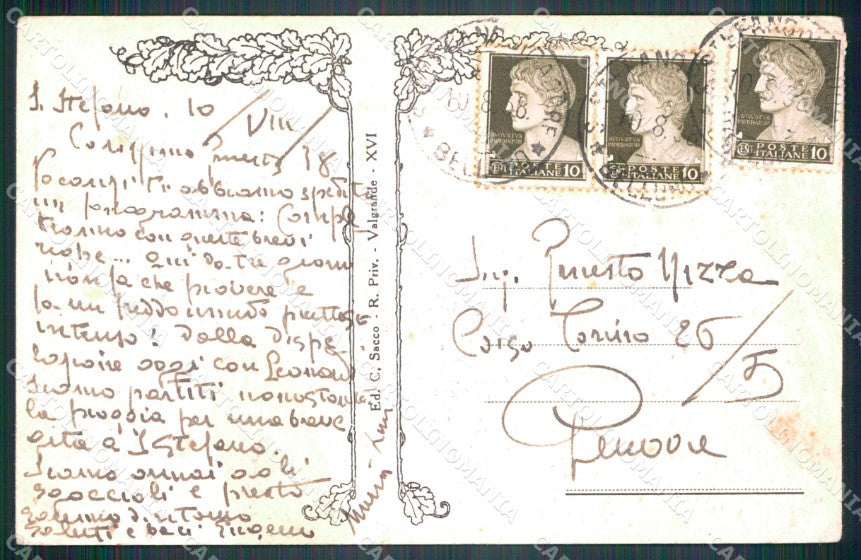 S. Stefano. 10
VIII
Carissimo Ernesto 38
Pocanzi ti abbiamo spedito
un programma:
con queste brevi
righe... Qui da tre giorni
non fa che piovere e
fa un freddo umido piuttosto
intenso! Dalla dispe
razione oggi con Leonardo
siamo partiti nonostante
la pioggia per una breve
gita a S. Stefano.
Siamo ormai agli
sgoccioli e presto
saremo di ritorno
saluti e baci
Ed. C. Sacco - R. Priv. - Valgrande - XVI
AVGVSTVS
IMPERATOR
POSTE
ITALIANE 10
AVGVSTVS
IMPERATOR
POSTE
ITALIANE 10
POSTE
ITALIANE 10
Ing. Ernesto Nizza
Corso Torino 26/5
Genova
CARTOLINOMANIA